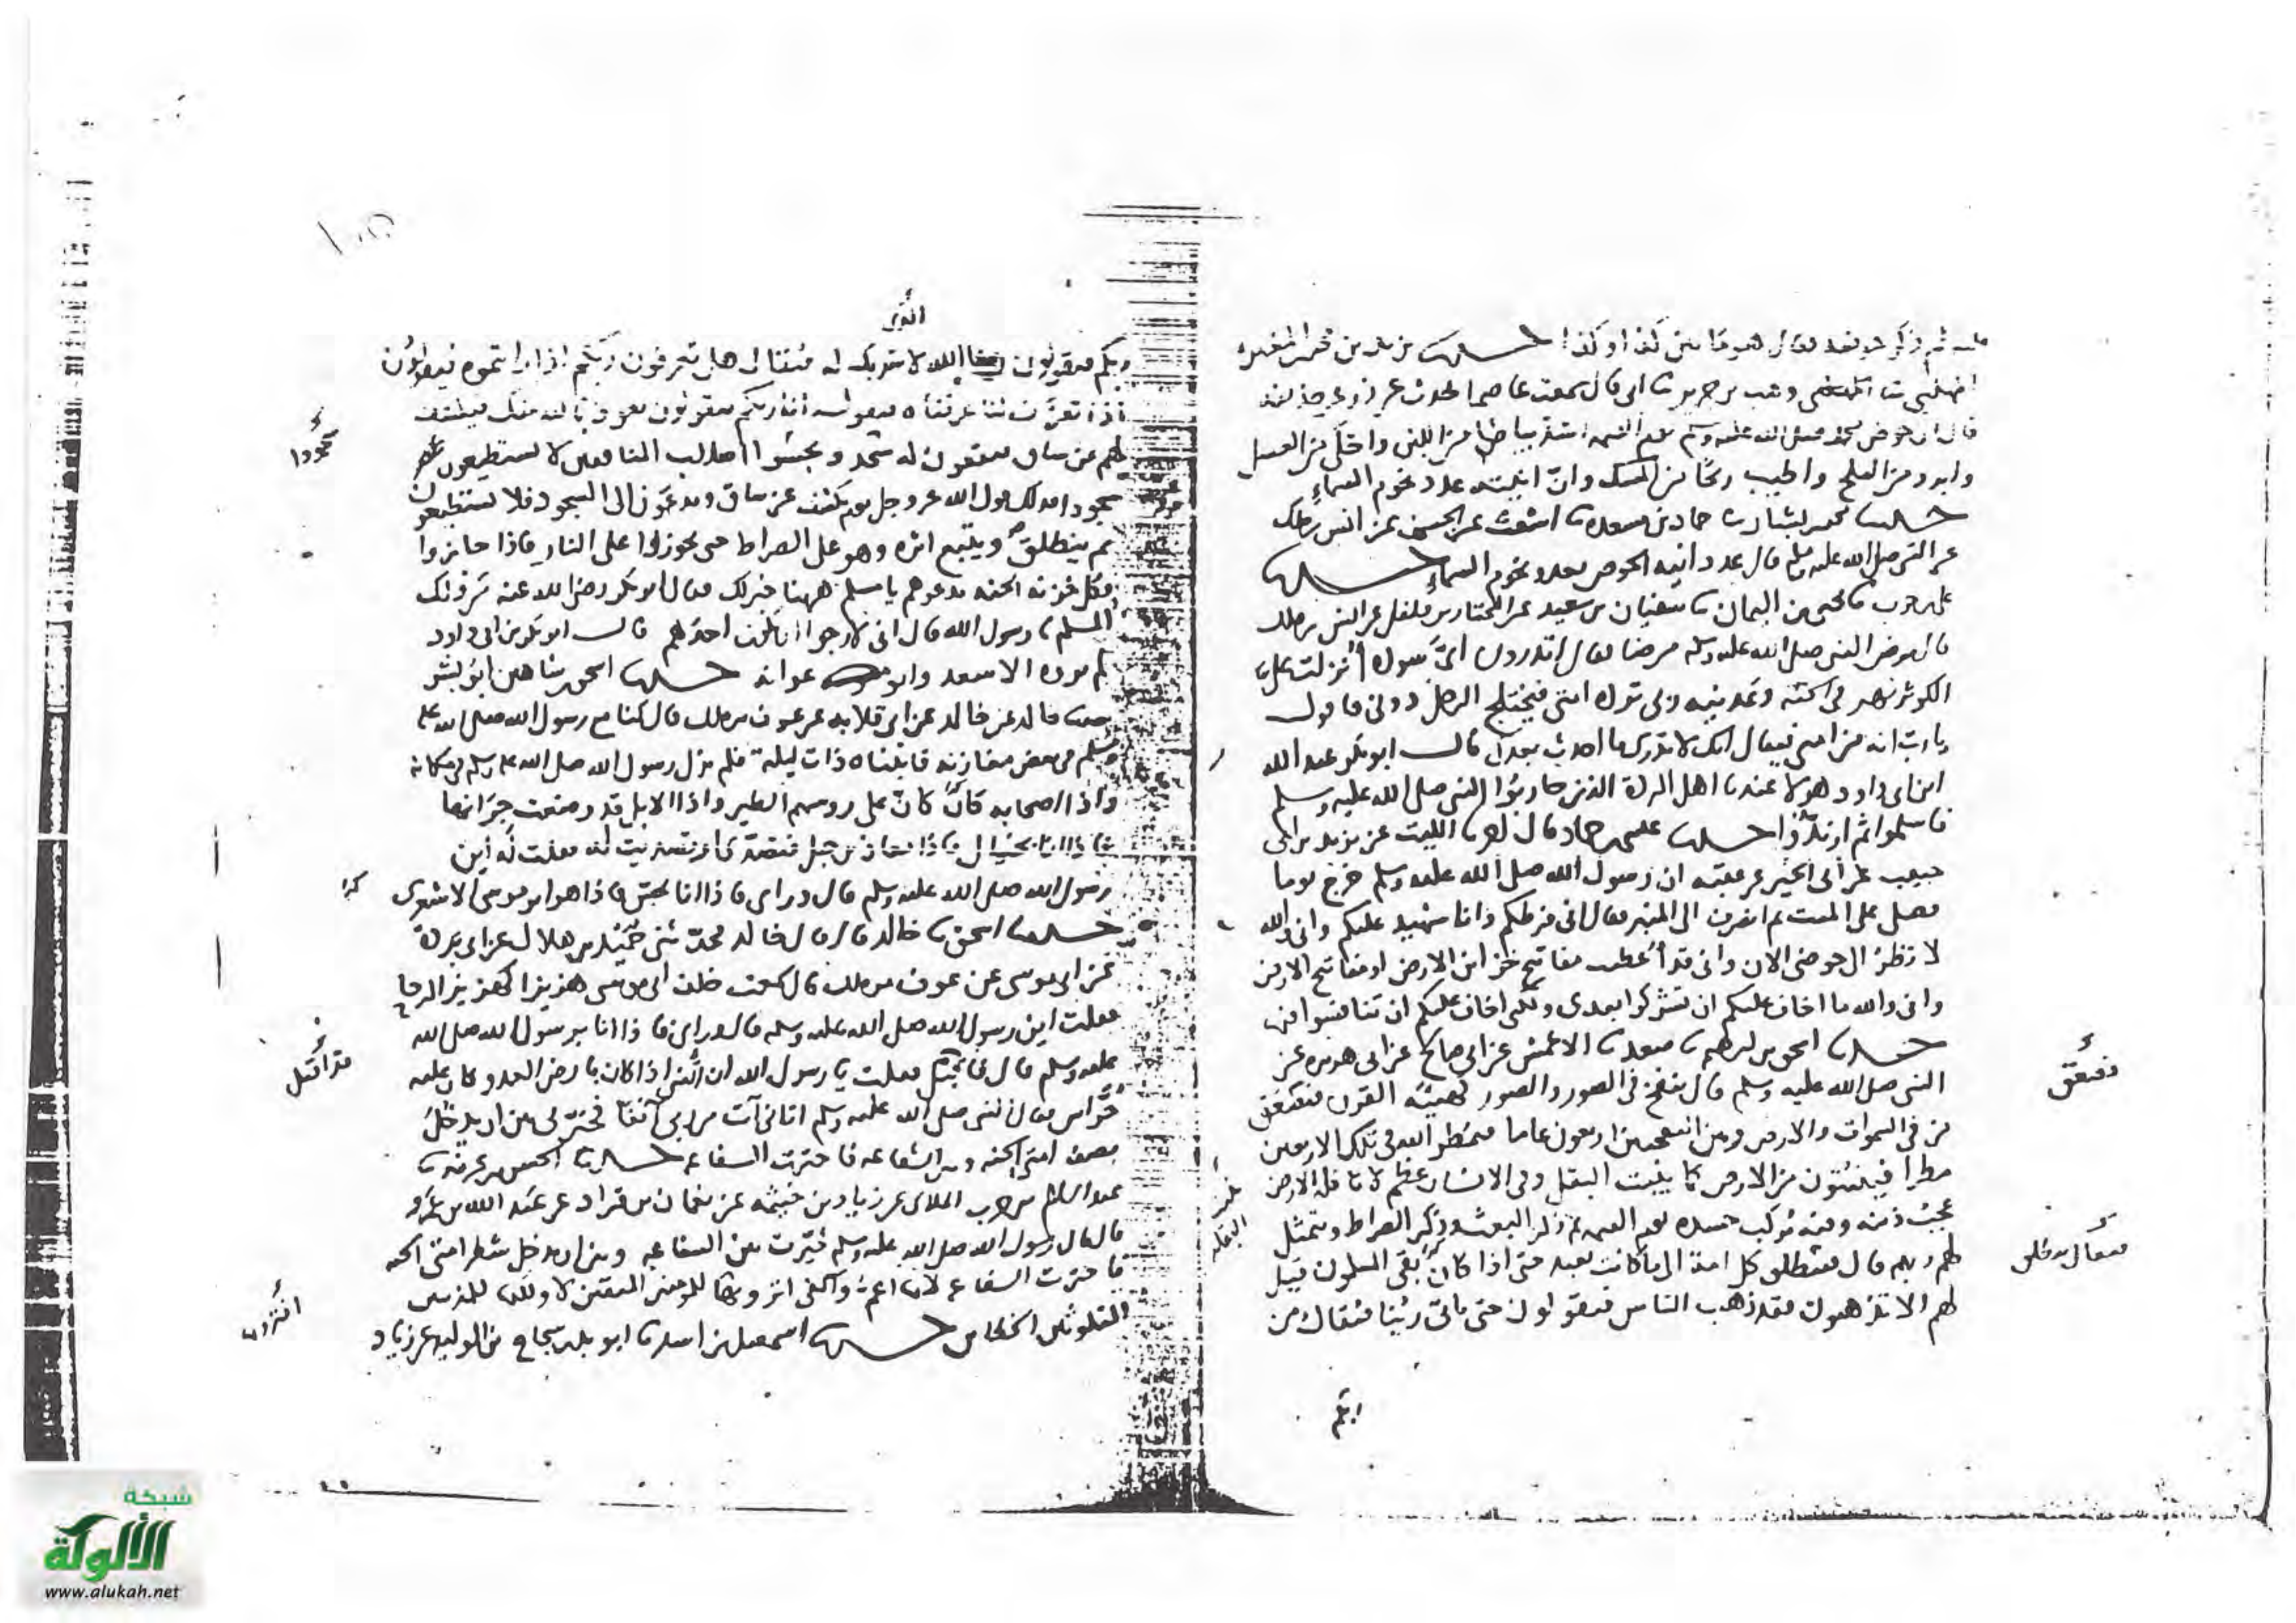 ثم ذكر حوضه فقال هو ما بين كذا وكذا حدثنا
وهب بن جرير نا ابى قال سمعت عاصما يحدث عن زر عن حذيفه
قال ان حوض محمد صلى الله عليه وسلم يوم القيمه اشد بياضا من اللبن واحلى من العسل
وابرد من الثلج واطيب ريحا من المسك وان انيته عدد نجوم السماء
حدثنا محمد بن بشار نا حماد بن مسعده نا اشعث عن الحسن عن انس بن ملك
عن النبى صلى الله عليه وسلم قال عدد انيه الحوض عدد نجوم السماء حدثنا
على بن حرب نا يحيى بن اليمان نا سفيان بن سعيد عن المختار بن فلفل عن انس بن ملك
قال مرض النبى صلى الله عليه وسلم مرضا فقال اتدرون اى سورة أنزلت على
الكوثر نهر فى الجنه وعدنيه ربى ترده امتى فيختلج الرجل دونى فاقول
يا رب انه من امتى فيقال انك لا تدرى ما احدث بعدك قال ابو بكر عبد الله
ابن ابى داود هولا عندنا اهل الردة الذين حاربوا النبى صلى الله عليه وسلم
فاسلموا ثم ارتدوا حدثنا عيسى بن حماد قال انا الليث عن يزيد بن ابى
حبيب عن ابى الخير عن عقبه ان رسول الله صلى الله عليه وسلم خرج يوما
فصلى على الميت ثم انصرف الى المنبر فقال انى فرطكم وانا شهيد عليكم وانى والله
لا نظر الى حوضى الان وانى قد أعطيت مفاتيح خزائن الارض او مفاتيح الارض
وانى والله ما اخاف عليكم ان تشركوا بعدى ولكنى اخاف عليكم ان تنافسوا فيها
حدثنا اسحق بن ابرهيم نا سعد نا الاعمش عن ابى صالح عن ابى هريره عن
النبى صلى الله عليه وسلم قال ينفخ فى الصور والصور كهيئه القرن فيصعق
فصعق
من فى السموات والارض وبين النفختين اربعون عاما فيمطر الله فى تلك الاربعين
مطرا فينبتون من الارض كما ينبت البقل وفى الانسان عظم لا تاكله الارض
عجب ذنبه ومنه يركب جسده يوم القيمه ثم ذكر البعث وذكر الصراط ويتمثل
لهم ربهم قال فينطلق كل امة الى ما كانت تعبد حتى اذا كان بقى المسلمون قيل
لهم الا تذهبون فقد ذهب الناس فيقولون حتى ياتى ربنا فيقال من
ربكم
ربكم فيقولون الله لا شريك له فيقال هل تعرفون ربكم اذا رايتموه فيقولون
اذا تعرف لنا عرفناه فيقول انا ربكم فيقولون نعوذ بالله منك فيكشف
لهم عن ساق فيقعون له سجد ويجسوا اصلاب المنافقين لا يستطيعون
سجودا فذلك قول الله عز وجل يوم يكشف عن ساق ويدعون الى السجود فلا يستطيعون
ثم ينطلق ويتبع اثره وهو على الصراط حتى يجوزوا على النار فاذا جازوا
فكل خزنه الجنه يدعوهم يا مسلم ههنا خير لك فقال ابو بكر رضى الله عنه من ذلك
المسلم يا رسول الله قال انى لارجوا ان تكون احدهم قال ابو بكر بن ابى داود
لم يروه الا سعد وابو عوانه حدثنا اسحق بن شاهين ابو بشر
نا خالد عن خالد عن ابى قلابه عن عوف بن ملك قال كنا مع رسول الله صلى الله عليه
وسلم فى بعض مغازيه فابتناه ذات ليلة فلم نزل رسول الله صلى الله عليه وسلم فى مكانه
واذا اصحابه كان على روسهم الطير واذا الابل قد وضعت جرانها
فاذا انا بخيال فاذا معاذ بن جبل فتصدى لى وتصديت له فقلت له اين
رسول الله صلى الله عليه وسلم قال وراى فاذا انا فاذا هو ابو موسى الاشعرى
حدثنا اسحق نا خالد قال قال خالد فحدثنى حميد بن هلال عن ابى بردة
عن ابى موسى عن عوف بن ملك قال سمعت خلف ابى موسى هزيزا كهزيز الرحا
فقلت اين رسول الله صلى الله عليه وسلم قال وراى فاذا انا برسول الله صلى الله
عليه وسلم قال فقلت يا رسول الله ان النبى اذا كان بارض العدو كان عليه
حراس فقال النبى صلى الله عليه وسلم اتانى آت من ربى آنفا فخيرنى بين ان يدخل
نصف امتى الجنه وبين الشفاعه فاخترت الشفاعه حدثنا الحسن بن عرفه نا
عبد السلم بن حرب الملاى عن زياد بن خيثمه عن نعمان بن قراد عن عبد الله بن عمر
قال قال رسول الله صلى الله عليه وسلم خيرت بين الشفاعه وبين ان يدخل شطر امتى الجنه
فاخترت الشفاعه لانها اعم وأكفى اترونها للمومنين المتقين لا ولكنها للمذنبين
اترونها
المتلوثين الخطاين حدثنا اسمعيل بن اسد نا ابو بدر شجاع بن الوليد عن زياد
شبكة
الألوكة
www.alukah.net